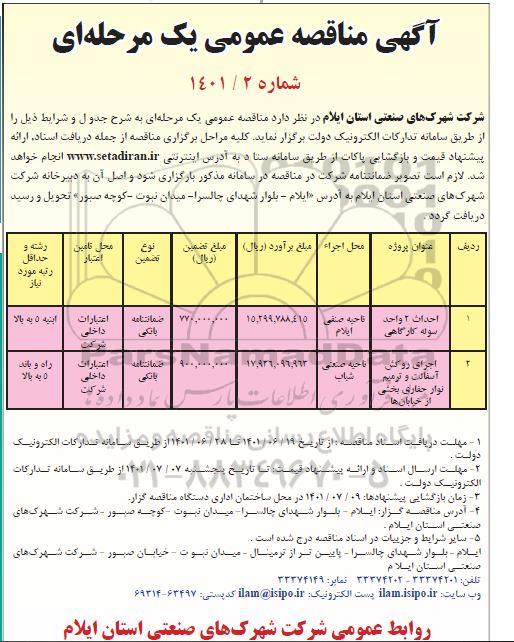 آگهی مناقصه عمومی یک مرحله‌ای
شماره ۲ / ۱۴۰۱
شرکت شهرک‌های صنعتی استان ایلام در نظر دارد مناقصه عمومی یک مرحله‌ای به شرح جدول و شرایط ذیل را
از طریق سامانه تدارکات الکترونیک دولت برگزار نماید. کلیه مراحل برگزاری مناقصه از جمله دریافت اسناد، ارائه
پیشنهاد قیمت و بازگشایی پاکات از طریق سامانه ستا د به آدرس اینترنتی www.setadiran.ir انجام خواهد
شد. لازم است تصویر ضمانتنامه شرکت در مناقصه در سامانه مذکور بارگزاری شود و اصل آن به دبیرخانه شرکت
شهرک‌های صنعتی استان ایلام به آدرس «ایلام – بلوار شهدای چالسرا- میدان نبوت –کوچه صبور» تحویل و رسید
دریافت گردد .
ردیف عنوان پروژه محل اجراء مبلغ برآورد (ریال) مبلغ تضمین (ریال) نوع تضمین محل تامین اعتبار رشته و حداقل رتبه مورد نیاز
۱ احداث ۲ واحد سوله کارگاهی ناحیه صنفی ایلام ۱۵,۲۹۹,۷۸۸,۴۱۵ ۷۷۰,۰۰۰,۰۰۰ ضمانتنامه بانکی اعتبارات داخلی شرکت ابنیه ۵ به بالا
۲ اجرای روکش آسفالت و ترمیم نوار حفاری بخشی از خیابان‌ها ناحیه صنعتی شباب ۱۷,۹۳۶,۰۹۶,۹۶۳ ۹۰۰,۰۰۰,۰۰۰ ضمانتنامه بانکی اعتبارات داخلی شرکت راه و باند ۵ به بالا
ParsNamadData
پایگاه اطلاع رسانی مناقصه و مزایده
۰۲۱-۸۸۳۴۹۶۷۰-۵
۱ – مهلت دریافت اسناد مناقصه : از تاریخ ۱۹ / ۰۶ / ۱۴۰۱ تا ۲۸ / ۰۶ / ۱۴۰۱ از طریق سامانه تدارکات الکترونیک
دولت .
۲- مهلت ارسال اسناد و ارائه پیشنهاد قیمت: تا تاریخ پنجشنبه ۰۷ / ۰۷ / ۱۴۰۱ از طریق سامانه تدارکات
الکترونیک دولت .
۳- زمان بازگشایی پیشنهادها: ۰۹ / ۰۷ / ۱۴۰۱ در محل ساختمان اداری دستگاه مناقصه گزار.
۴- آدرس مناقصه گزار: ایلام – بلوار شهدای چالسرا- میدان نبوت –کوچه صبور – شرکت شهرک‌های
صنعتی استان ایلام .
۵- سایر شرایط و جزییات در اسناد مناقصه درج شده است .
ایلام – بلوار شهدای چالسرا – پایین تر از ترمینال – میدان نبوت – خیابان صبور – شرکت شهرک‌های
صنعتی استان ایلام م
تلفن: ۳۳۳۷۴۲۰۱ – ۳۳۳۷۴۲۰۲ نمابر: ۳۳۳۷۴۱۴۹
وب سایت: ilam.isipo.ir پست الکترونیک: ilam@isipo.ir کدپستی: ۶۳۴۹۷-۶۹۳۱۴
روابط عمومی شرکت شهرک‌های صنعتی استان ایلام